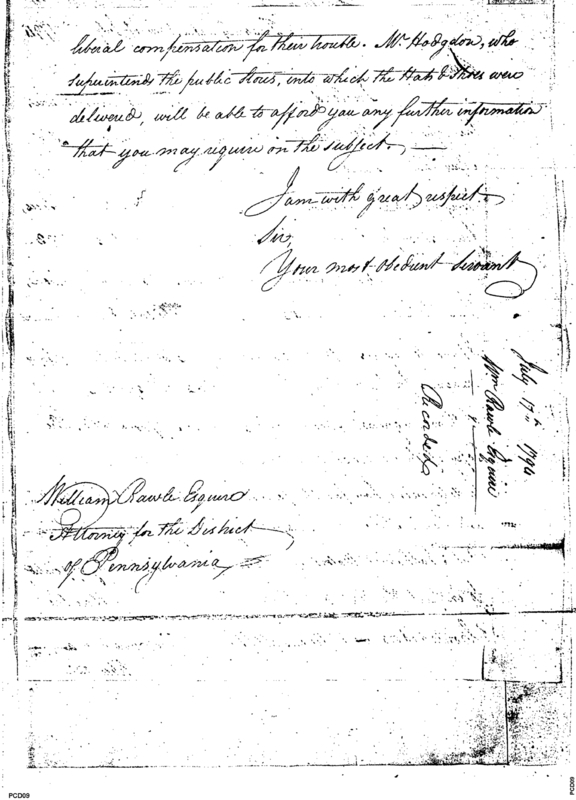 liberal compensation for their trouble. Mr. Hodgdon, who
superintends the public Stores, into which the Hats & Shoes were
delivered, will be able to afford you any further information
that you may require on the subject.
I am with great respect.
Sir,
Your most obedient Servant
July 17th 1794
Wm Rawle Esquire
Recorded
William Rawle Esquire
Attorney for the District
of Pennsylvania
PCD09
PCD09